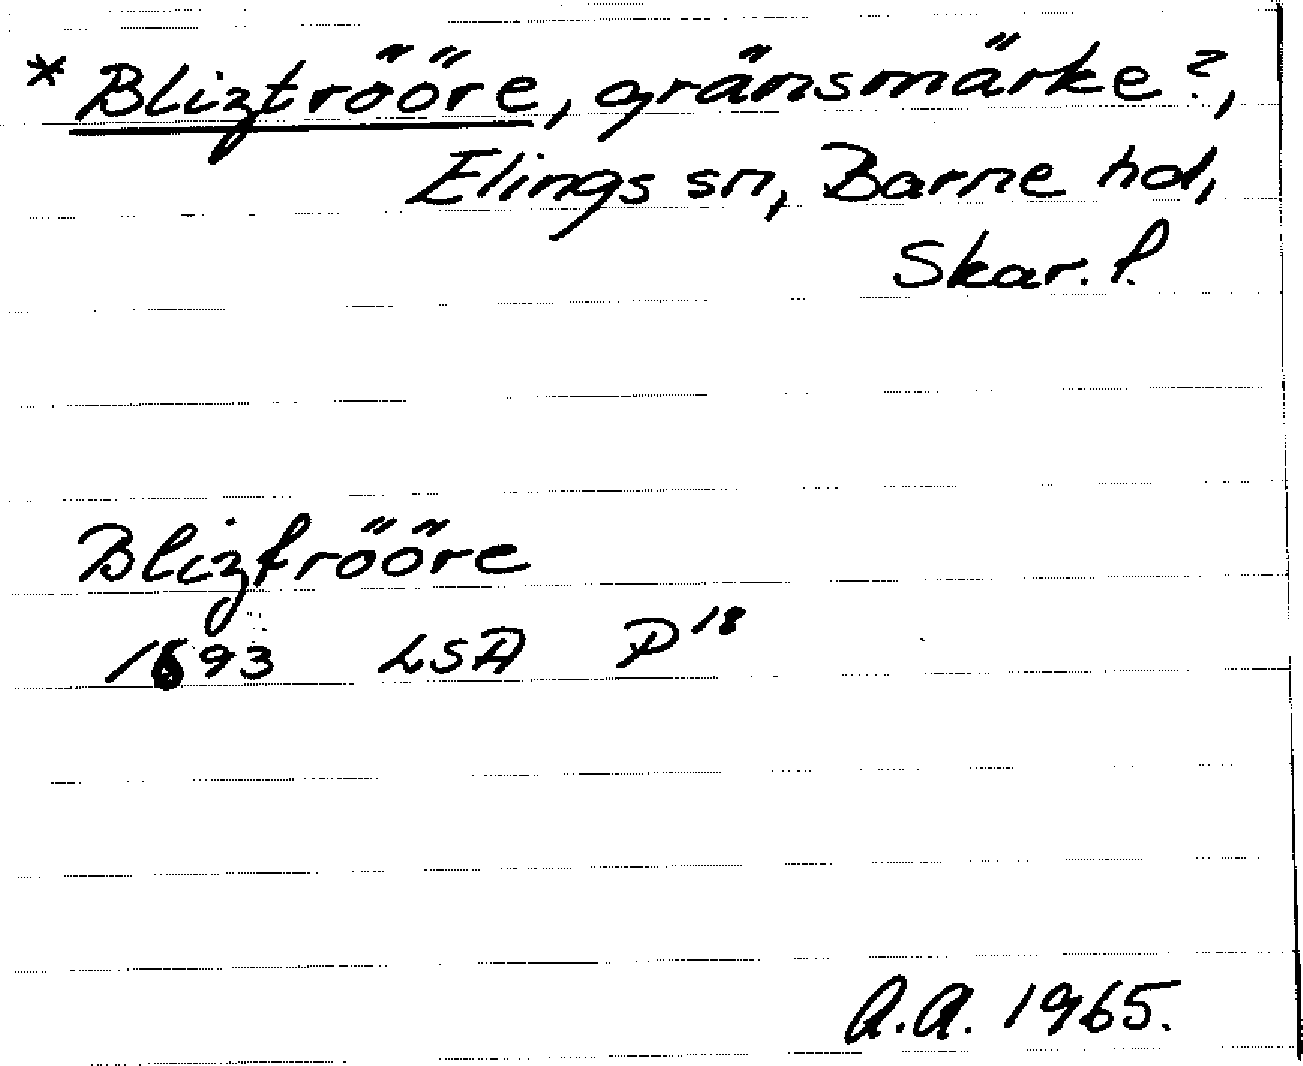 * Bliztrööre, gränsmärke?,
Elings sn, Barne hd,
Skar. l.
Bliztrööre
1693 LSA P 18
A.A. 1965.